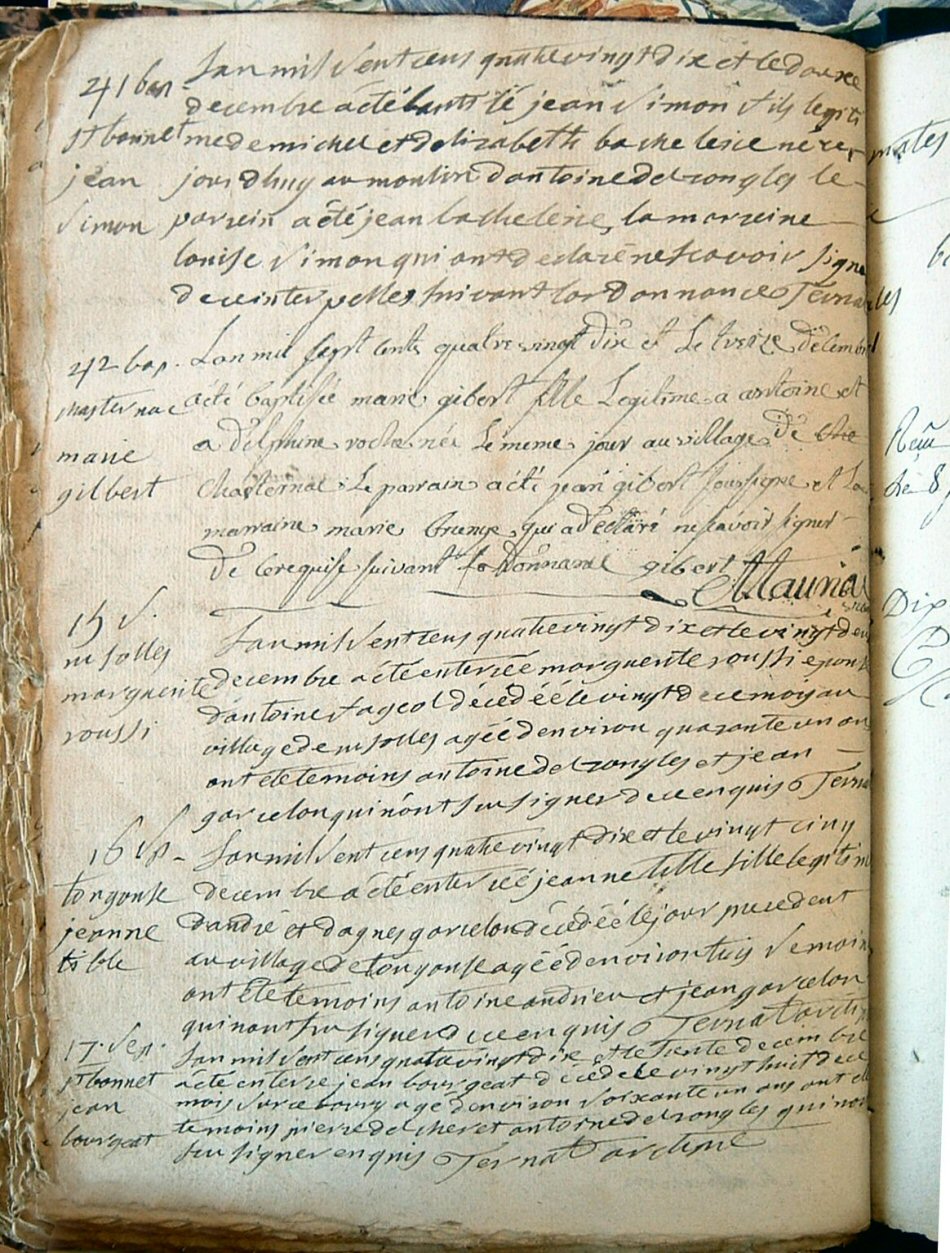 41 bap.
st bonnet
jean
simon
Lan mil sept cens quatrevingt dix et le douze
decembre a été batisé jean simon fils legiti
me de michel et delizabeth bachelerie né ce
jourdhuy au moulin dantoine delzongles le
parrein a été jean bachelerie, la marreine
louise simon qui ont declaré ne scavoir signer
de ce interpelles suivant lordonnance
42 bap.
Chasternac
marie
gilbert
Lan mil sept cents quatre vingt dix et Le treize décembre
a été baptisée marie gibert fille Legitime a antoine et
a delphine roche née Le meme jour au village de
Chasternac Le parrain a été jean gibert soussigné et La
marraine marie qui a déclaré ne savoir signer
De ce requise suivant Lordonnance gibert
15 s.
marguerite
roussi
Lan mil sept cens quatrevingt dix et le vingt deux
decembre a été enterrée marguerite roussi epouse
dantoine fageol décédée le vingt de ce mois au
village de agée denviron quarante un an
ont été temoins antoine delzongles et jean
garcelon qui nont su signer de ce enquis
16 sep.
torgouse
jeanne
tible
Lan mil sept cens quatrevingt dix et le vingt cinq
decembre a été enterrée jeanne tible fille legitime
dandré et dagnes garcelon décédée le jour precedent
au village de torgouse agée denviron huis semaines
ont été temoins antoine andrieu et jean garcelon
qui nont su signer de ce enquis
17. sep.
st bonnet
jean
bourgeat
Lan mil sept cens quatrevingt dix et le trente decembre
a été enterré jean bourgeat décédé le vingt huit de ce
mois sur ce bourg agé denviron soixante un ans ont été
temoins pierre delcher et antoine delzongles qui nont
su signer enquis